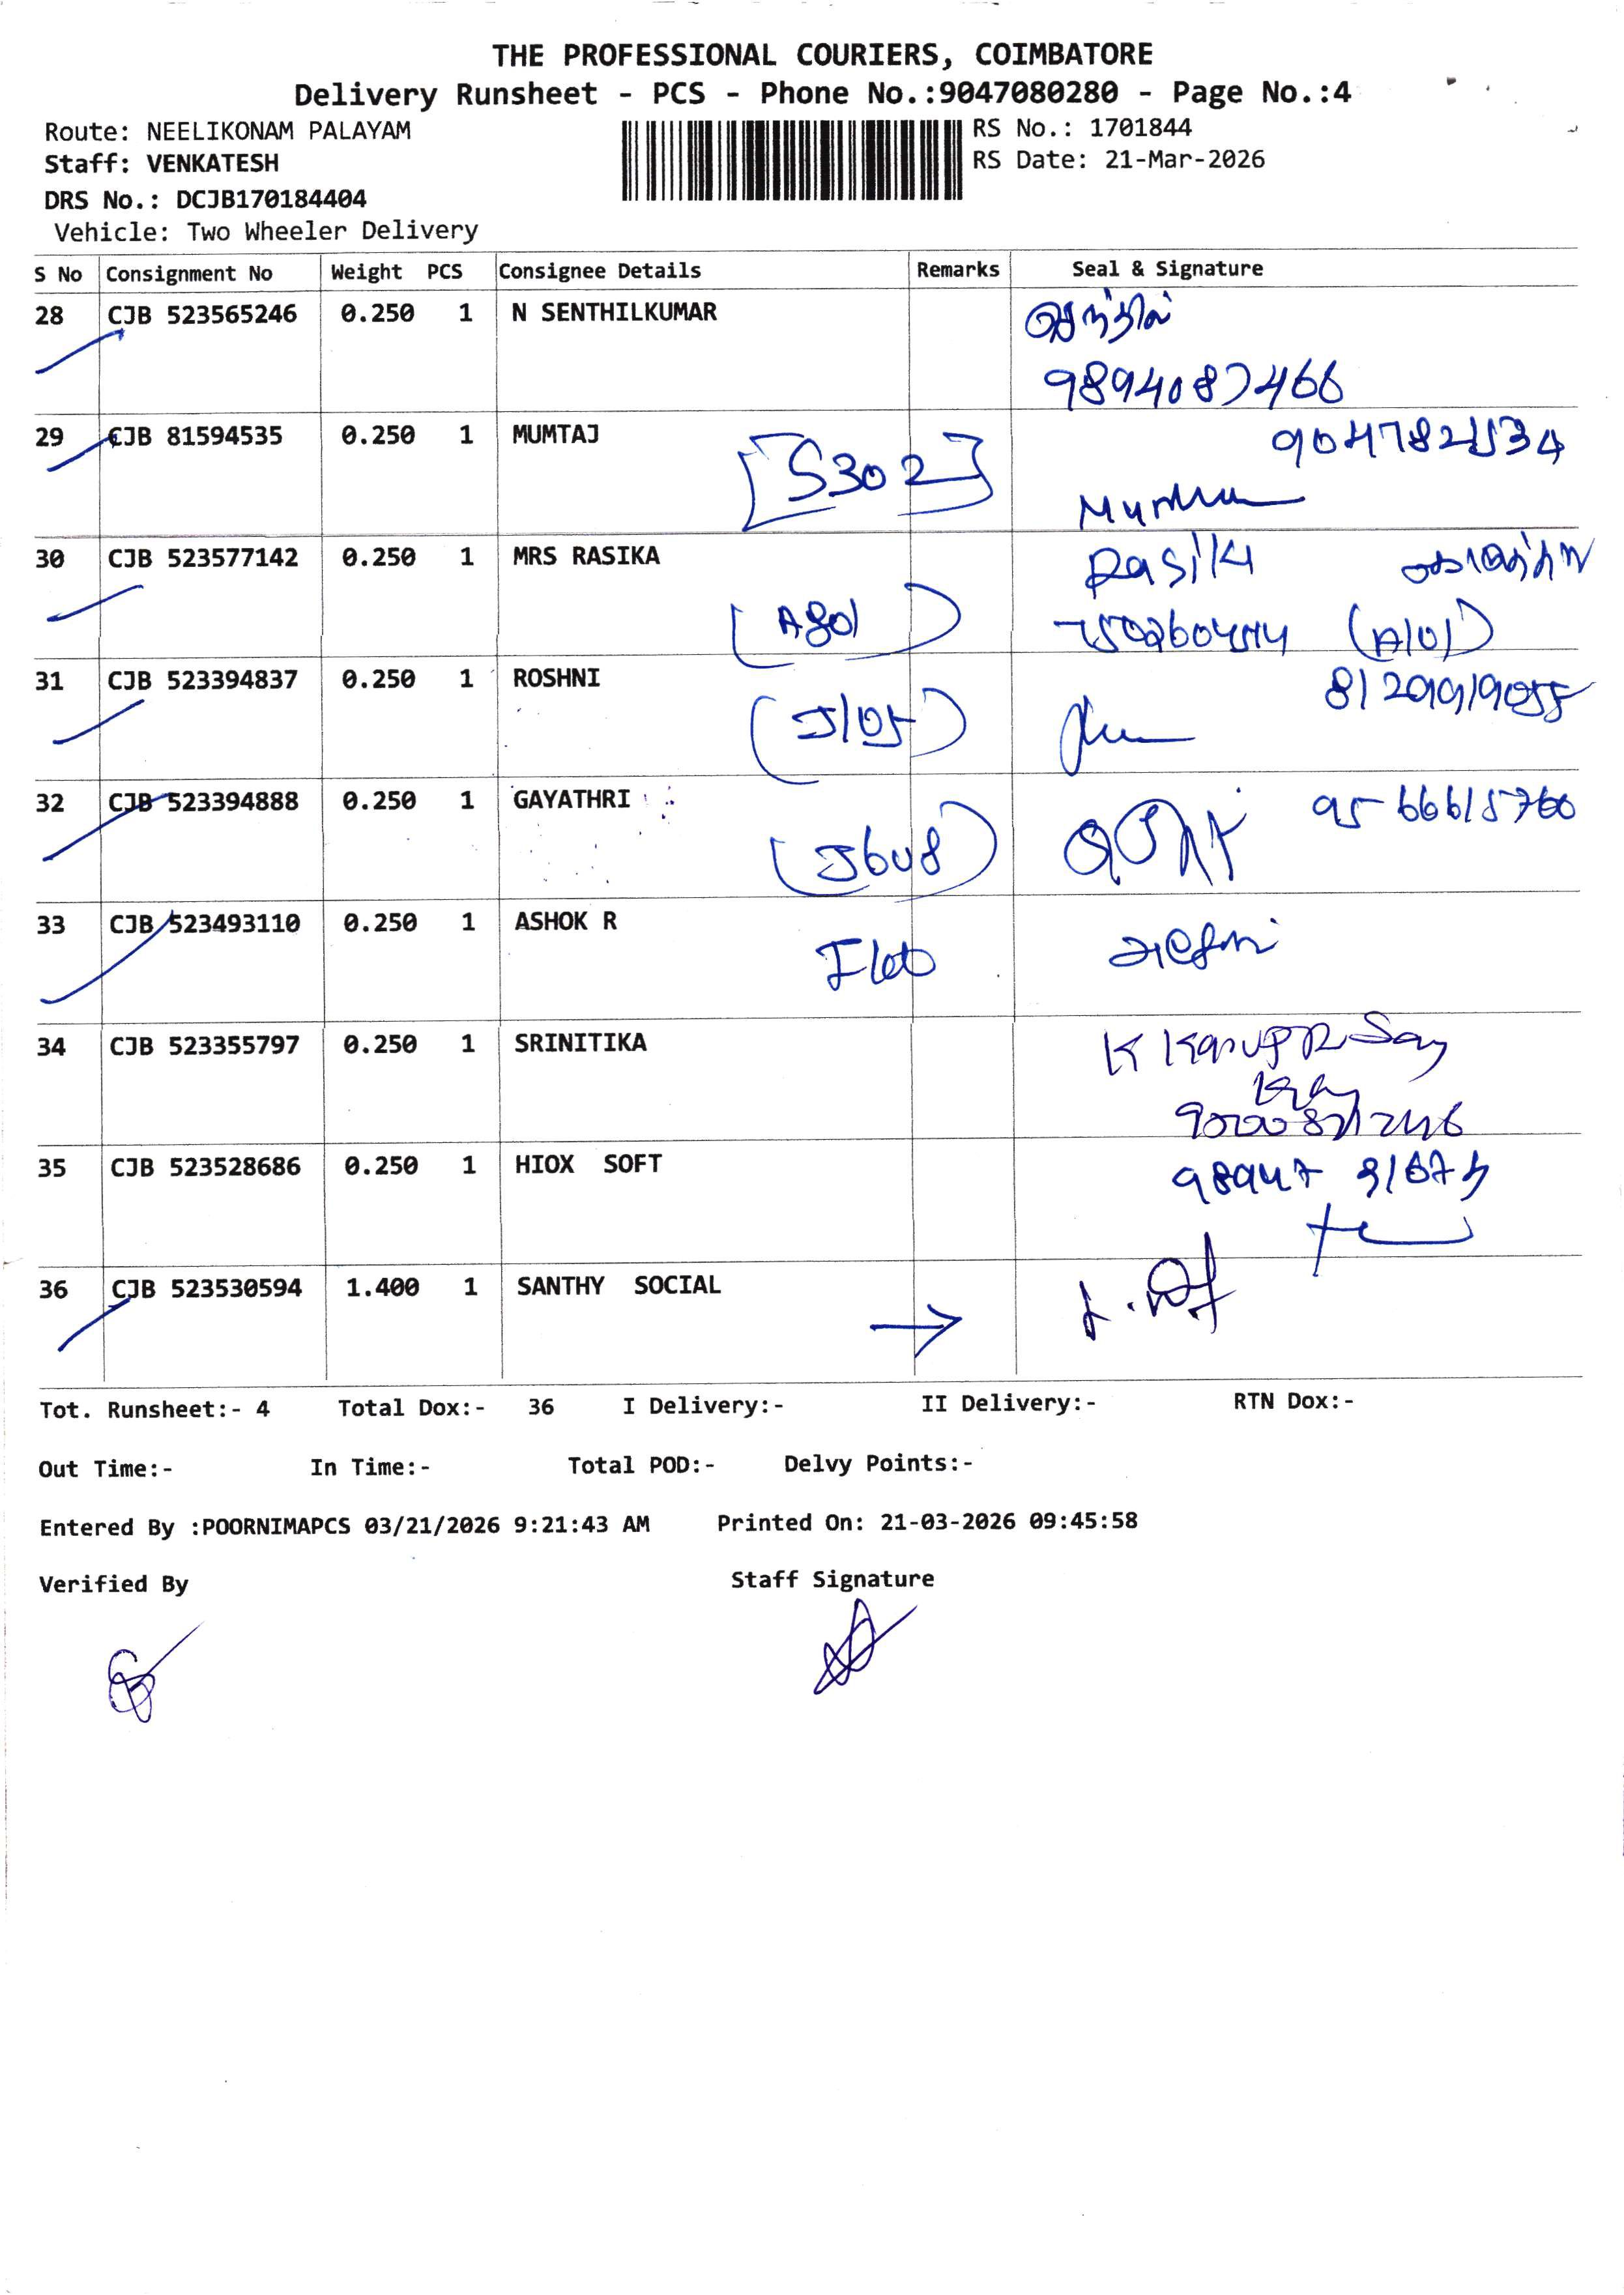 THE PROFESSIONAL COURIERS, COIMBATORE
Delivery Runsheet - PCS - Phone No.:9047080280 - Page No.:4
Route: NEELIKONAM PALAYAM
RS No.: 1701844
Staff: VENKATESH
RS Date: 21-Mar-2026
DRS No.: DCJB170184404
Vehicle: Two Wheeler Delivery
S No Consignment No Weight PCS Consignee Details Remarks Seal & Signature
28 CJB 523565246 0.250 1 N SENTHILKUMAR
9894087466
29 CJB 81594535 0.250 1 MUMTAJ
[S302]
30 CJB 523577142 0.250 1 MRS RASIKA
(A801) (A101)
31 CJB 523394837 0.250 1 ROSHNI
(J105)
32 CJB 523394888 0.250 1 GAYATHRI
(J608)
33 CJB 523493110 0.250 1 ASHOK R
34 CJB 523355797 0.250 1 SRINITIKA
35 CJB 523528686 0.250 1 HIOX SOFT
36 CJB 523530594 1.400 1 SANTHY SOCIAL
Tot. Runsheet:- 4 Total Dox:- 36 I Delivery:- II Delivery:- RTN Dox:-
Out Time:- In Time:- Total POD:- Delvy Points:-
Entered By :POORNIMAPCS 03/21/2026 9:21:43 AM Printed On: 21-03-2026 09:45:58
Verified By Staff Signature